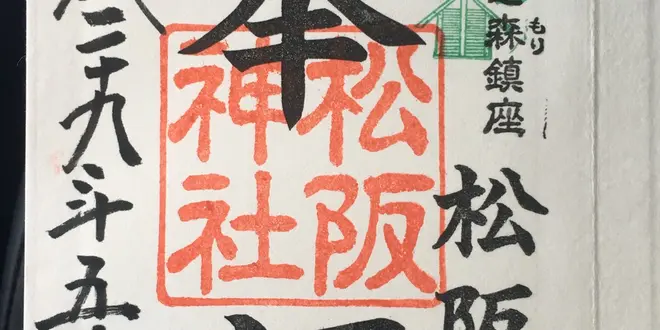 森鎮座
もり
松阪
奉
松阪
神社
二十九年五